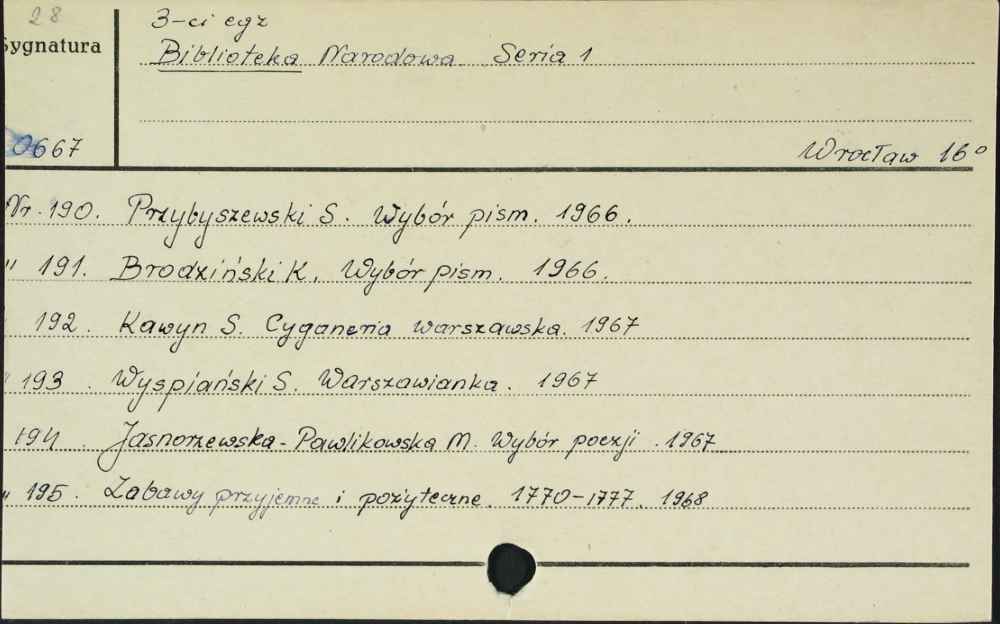 28
3-ci egz
Sygnatura
Biblioteka Narodowa Seria 1
0667
Wrocław 16°
Nr. 190. Przybyszewski S. Wybór pism. 1966.
" 191. Brodziński K. Wybór pism. 1966.
192. Kawyn S. Cyganeria warszawska. 1967
" 193. Wyspiański S. Warszawianka. 1967
194. Jasnorzewska-Pawlikowska M. Wybór poezji. 1967
" 195. Zabawy przyjemne i pożyteczne. 1770-1777. 1968